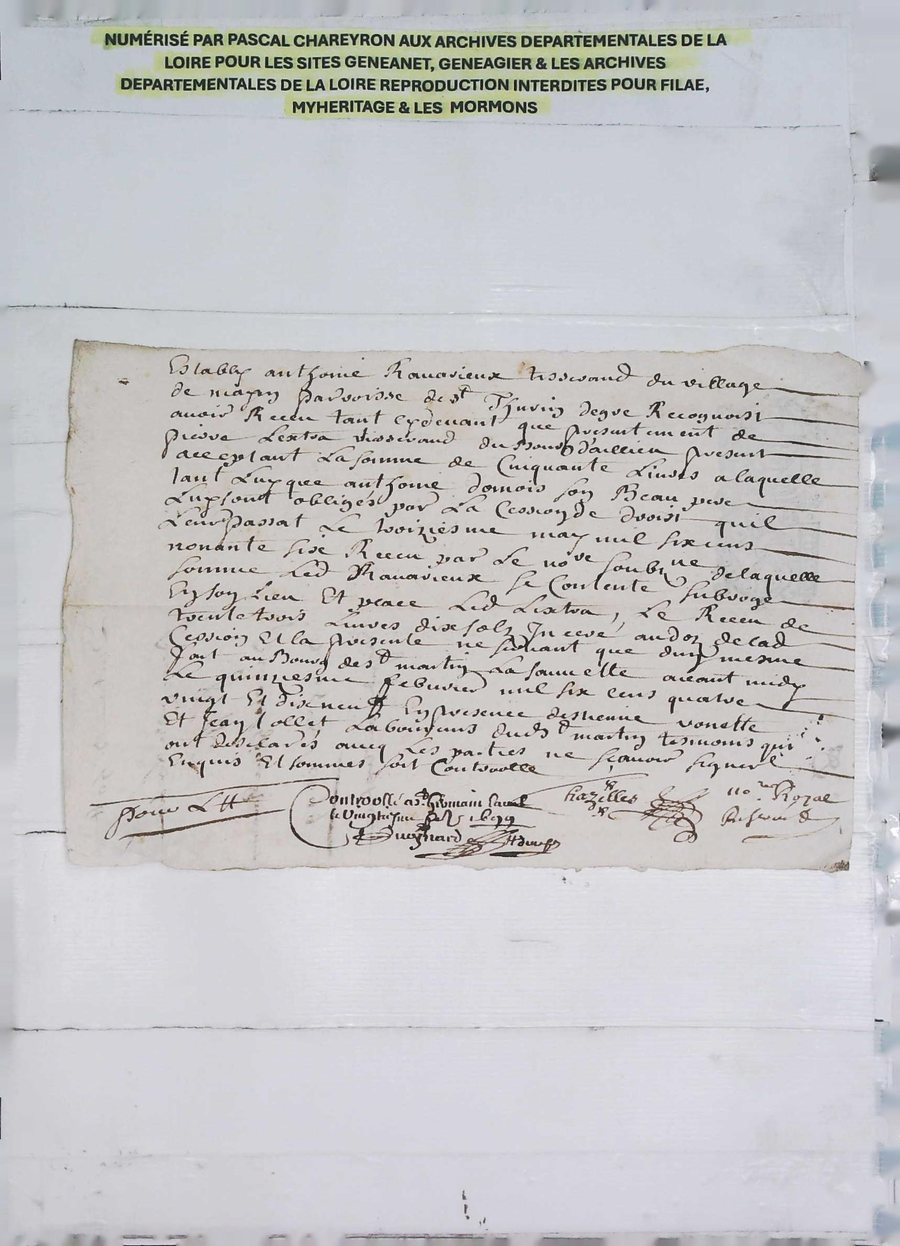 NUMÉRISÉ PAR PASCAL CHAREYRON AUX ARCHIVES DEPARTEMENTALES DE LA
LOIRE POUR LES SITES GENEANET, GENEAGIER & LES ARCHIVES
DEPARTEMENTALES DE LA LOIRE REPRODUCTION INTERDITES POUR FILAE,
MYHERITAGE & LES MORMONS
Establi anthoine Ravarieux tisserand du village
de parroisse de st Thurin degre Recognoist
avoir Receu tant cydevant que presentement de
pierre Lextra tisserand du Bourg d'aillieu present
acceptant La somme de Cinquante Livres a laquelle
tant Luy que anthoine domois son Beau pere
Luy sont obliges par La Cession de droist quil
Leur passat Le troiziesme may mil six cens
nonante six Receu par Le nore soubne delaquelle
somme Led Ravarieux se Contente subroge
En son Lieu Et place Led Lextra, Le Receu de
trente trois Livres dix sols Insere au doz de lad
Cession Et la presente ne servant que dung mesme
fait au Bourg de st martin La sauvette avant midy
Le quinziesme febvrier mil six cens quatre
vingt Et dix neuf En presence destienne vonette
Et Jean Collet Laboureurs dud st martin tesmoins qui
ont desclarés avec Les parties ne sçavoir signer
Enquis Et sommes soit Controolle
pour
Controollé a st Germain Laval
le 1699
Chazelles
nore Royal